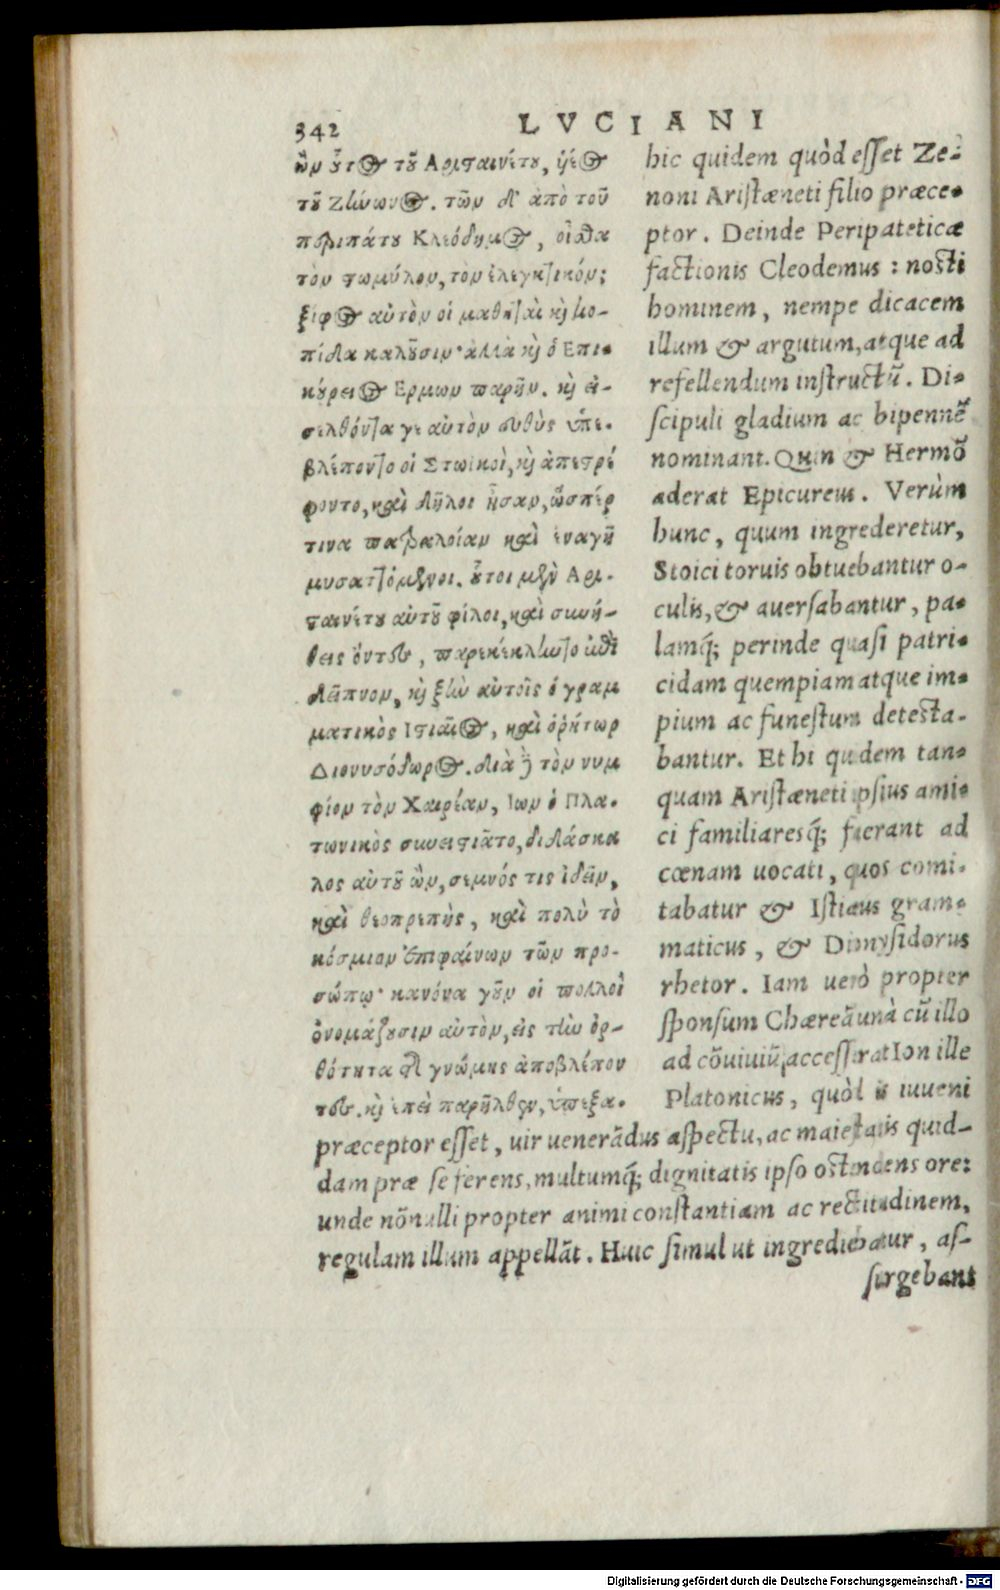 342
LVCIANI
ὢν οὗτος τοῦ Αρισταινέτου, ὑέος
τοῦ Ζήνωνος. τῶν δ' ἀπὸ τοῦ
περιπάτου Κλεόδημος, οἶσθα
τὸν στωμύλον, τὸν ἐλεγκτικόν;
ξίφος αὐτὸν οἱ μαθηταὶ καὶ κο-
πίδα καλοῦσιν· ἀλλὰ καὶ ὁ Επι-
κούρειος Ερμων παρῆν. καὶ εἰ-
σελθόντα γε αὐτὸν εὐθὺς ὑπε-
βλέποντο οἱ Στωϊκοὶ, καὶ ἀπεστρέ
φοντο, καὶ δῆλοι ἦσαν, ὥσπερ
τινα πατραλοίαν καὶ ἐναγῆ
μυσαττόμενοι. οὗτοι μὲν Αρι-
σταινέτου αὐτοῦ φίλοι, καὶ συνή-
θεις ὄντες, παρεκέκληντο ἐπὶ
δεῖπνον, καὶ ξὺν αὐτοῖς ὁ γραμ
ματικὸς Ιστιαῖος, καὶ ὁ ῥήτωρ
Διονυσόδωρος. διὰ δὲ τὸν νυμ
φίον τὸν Χαιρέαν, Ιων ὁ Πλα-
τωνικὸς συνειστιᾶτο, διδάσκα
λος αὐτοῦ ὢν, σεμνός τις ἰδεῖν,
καὶ θεοπρεπὴς, καὶ πολὺ τὸ
κόσμιον ἐπιφαίνων τῶν προ-
σώπῳ· κανόνα γοῦν οἱ πολλοὶ
ὀνομάζουσιν αὐτὸν, εἰς τὴν ὀρ-
θότητα τῆς γνώμης ἀποβλέπον
τες. καὶ ἐπεὶ παρῆλθεν, ὑπεξα-
hic quidem quòd esset Ze-
noni Aristæneti filio præce-
ptor. Deinde Peripateticæ
factionis Cleodemus : nosti
hominem, nempe dicacem
illum & argutum, atque ad
refellendum instructũ. Di-
scipuli gladium ac bipennẽ
nominant. Quin & Hermõ
aderat Epicureus. Verùm
hunc, quum ingrederetur,
Stoici toruis obtuebantur o-
culis, & auersabantur, pa-
lamq́; perinde quasi patri-
cidam quempiam atque im-
pium ac funestum detesta-
bantur. Et hi quidem tan-
quam Aristæneti ipsius ami-
ci familiaresq́; fuerant ad
cœnam uocati, quos comi-
tabatur & Istiæus gram-
maticus, & Dionysidorus
rhetor. Iam uerò propter
sponsum Chæreã unà cũ illo
ad cõuiuiũ accesserat Ion ille
Platonicus, quòd is iuueni
præceptor esset, uir uenerãdus aspectu, ac maiestatis quid-
dam præ se ferens, multumq́; dignitatis ipso ostendens ore:
unde nõnulli propter animi constantiam ac rectitudinem,
regulam illum appellãt. Huic simul ut ingrediebatur, as-
surgebant
Digitalisierung gefördert durch die Deutsche Forschungsgemeinschaft - DFG